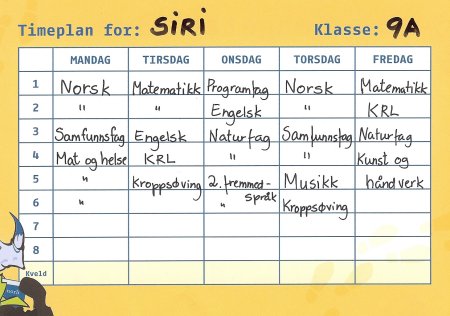 Timeplan for: SiRi Klasse: 9A
MANDAG TIRSDAG ONSDAG TORSDAG FREDAG
1 Norsk Matematikk Programfag Norsk Matematikk
2 " " Engelsk " KRL
3 Samfunnsfag Engelsk Naturfag Samfunnsfag Naturfag
4 Mat og helse KRL " " Kunst og
5 " Kroppsøving 2. fremmed- Musikk håndverk
6 " " språk Kroppsøving
7
8
Kveld